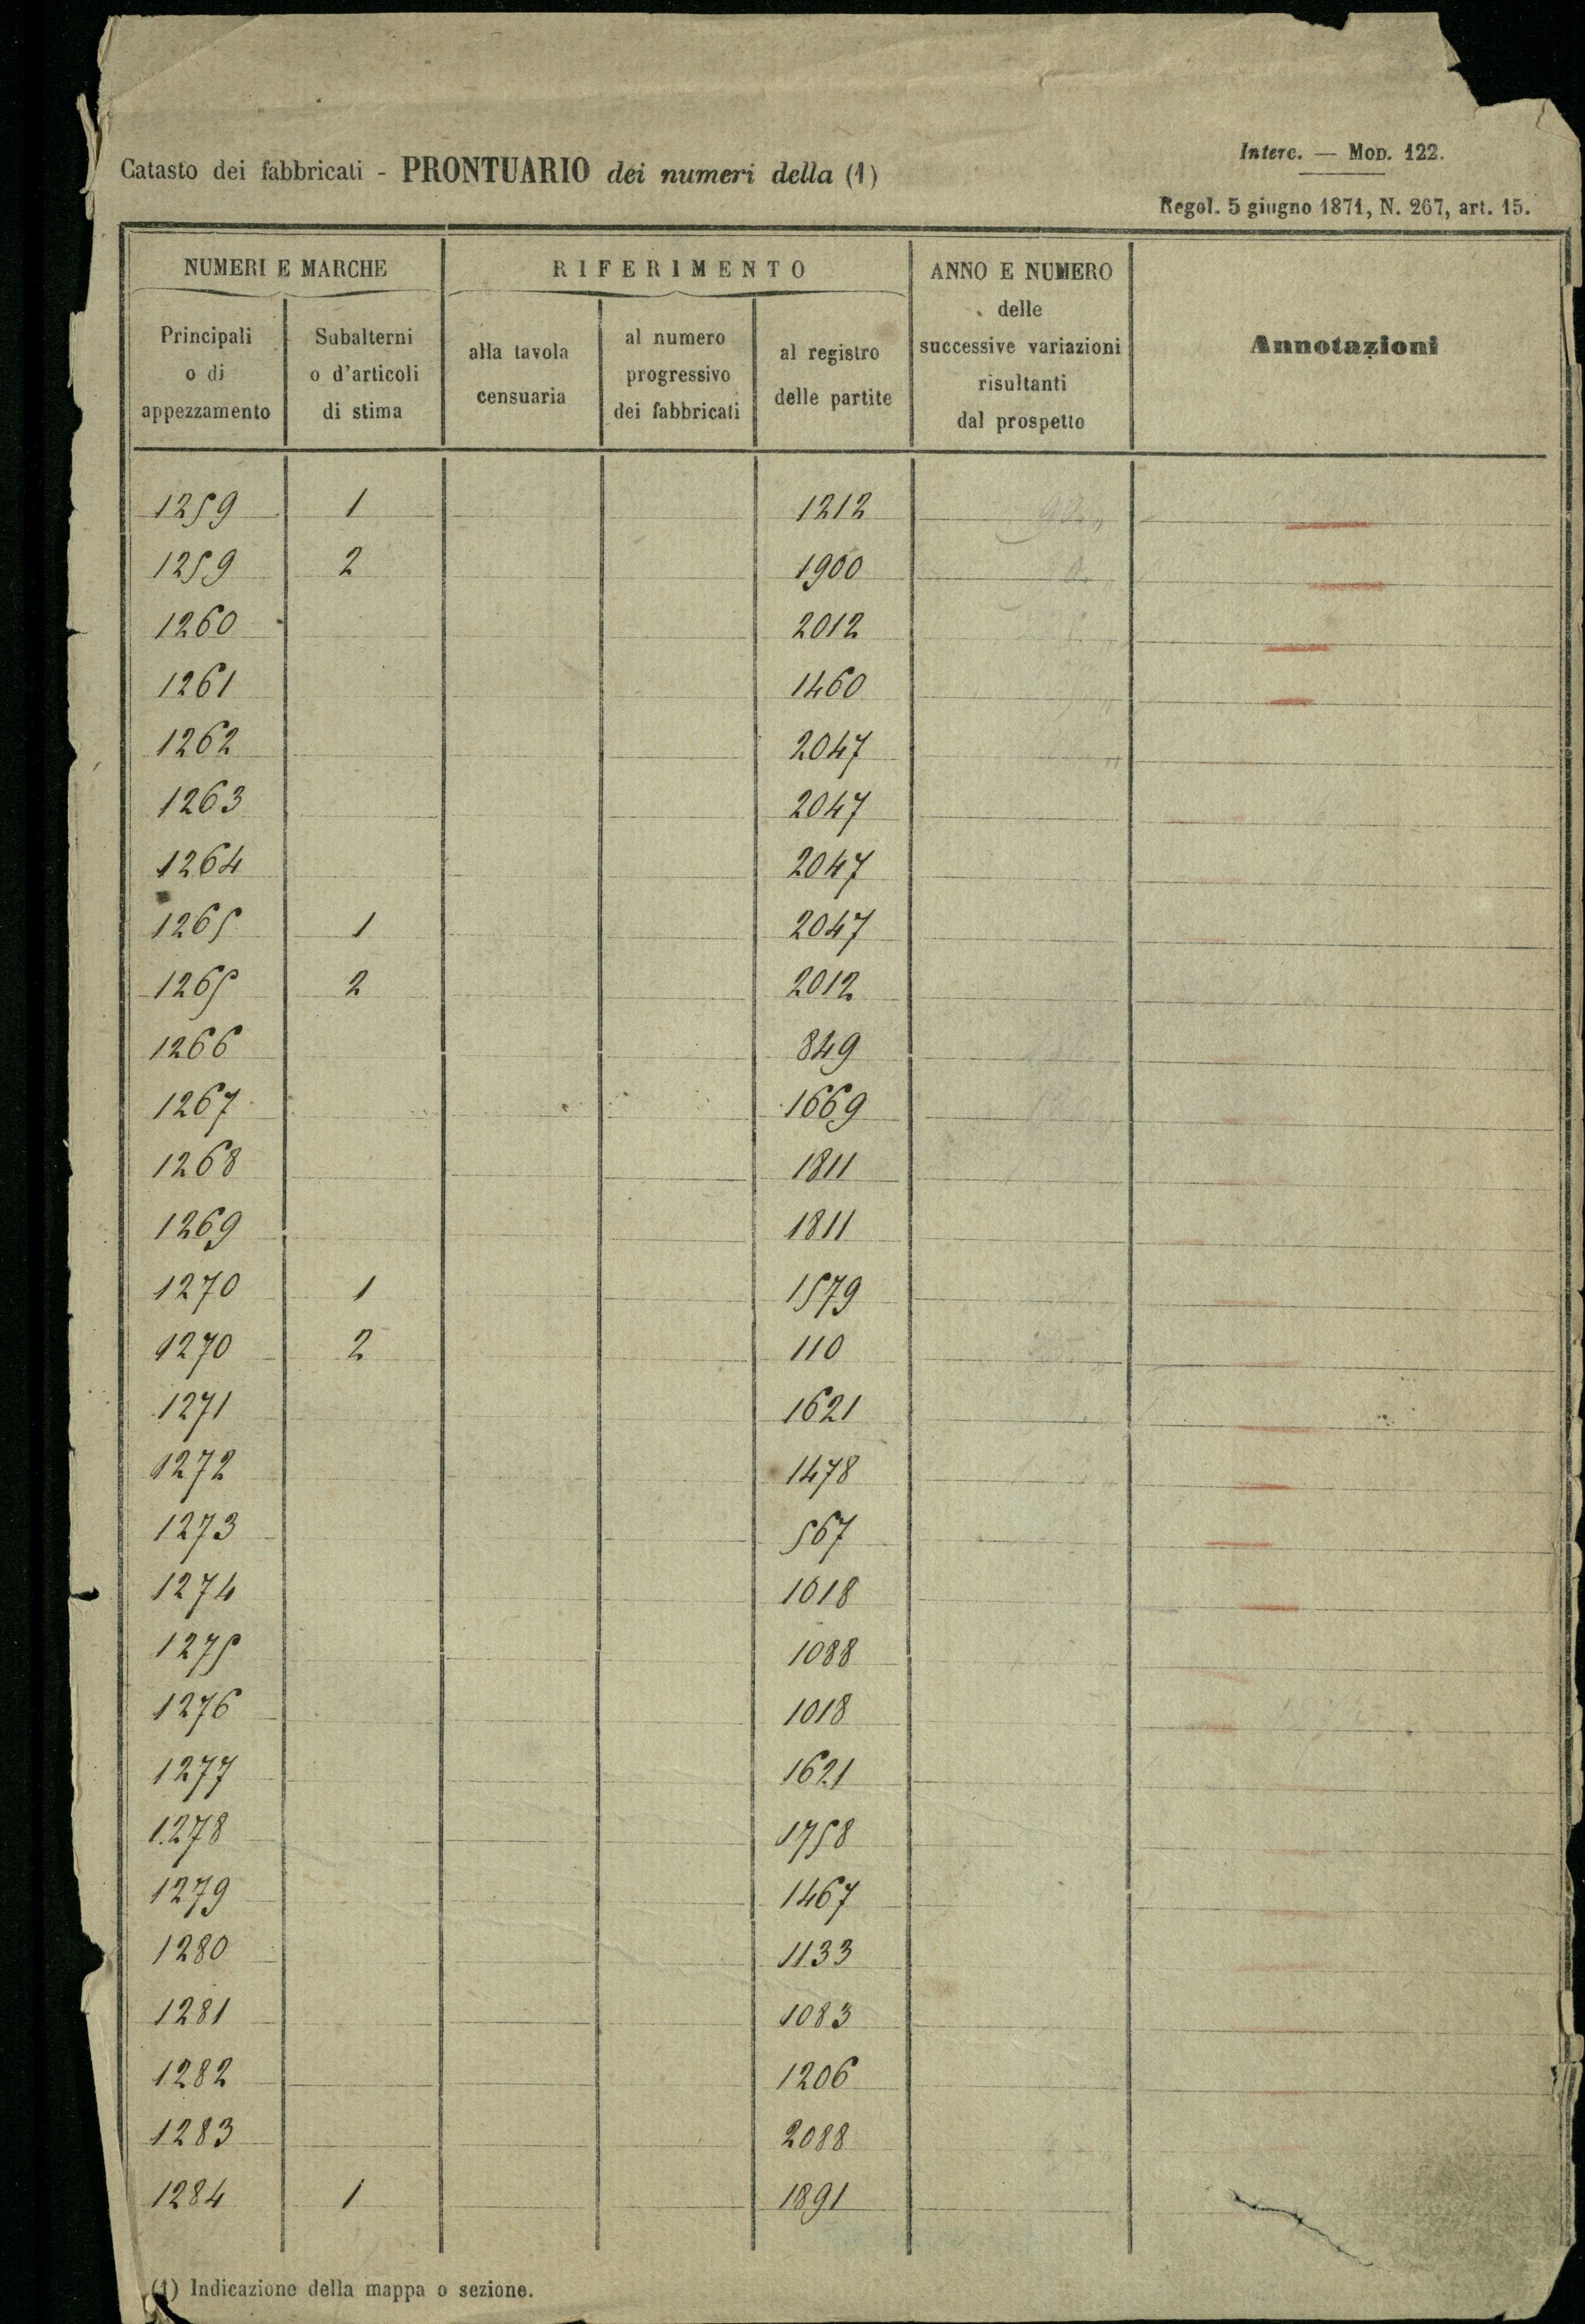 Catasto dei fabbricati - PRONTUARIO dei numeri della (1)
Interc. — Mod. 122.
Regol. 5 giugno 1871, N. 267, art. 15.
NUMERI E MARCHE
RIFERIMENTO
ANNO E NUMERO
delle
successive variazioni
risultanti
dal prospetto
Annotazioni
Principali
o di
appezzamento
Subalterni
o d'articoli
di stima
alla tavola
censuaria
al numero
progressivo
dei fabbricati
al registro
delle partite
1259 1 1212
1259 2 1900
1260 2012
1261 1460
1262 2047
1263 2047
1264 2047
1265 1 2047
1265 2 2012
1266 849
1267 1669
1268 1811
1269 1811
1270 1 1579
1270 2 110
1271 1621
1272 1478
1273 567
1274 1018
1275 1088
1276 1018
1277 1621
1278 1758
1279 1467
1280 1133
1281 1083
1282 1206
1283 2088
1284 1 1891
(1) Indicazione della mappa o sezione.